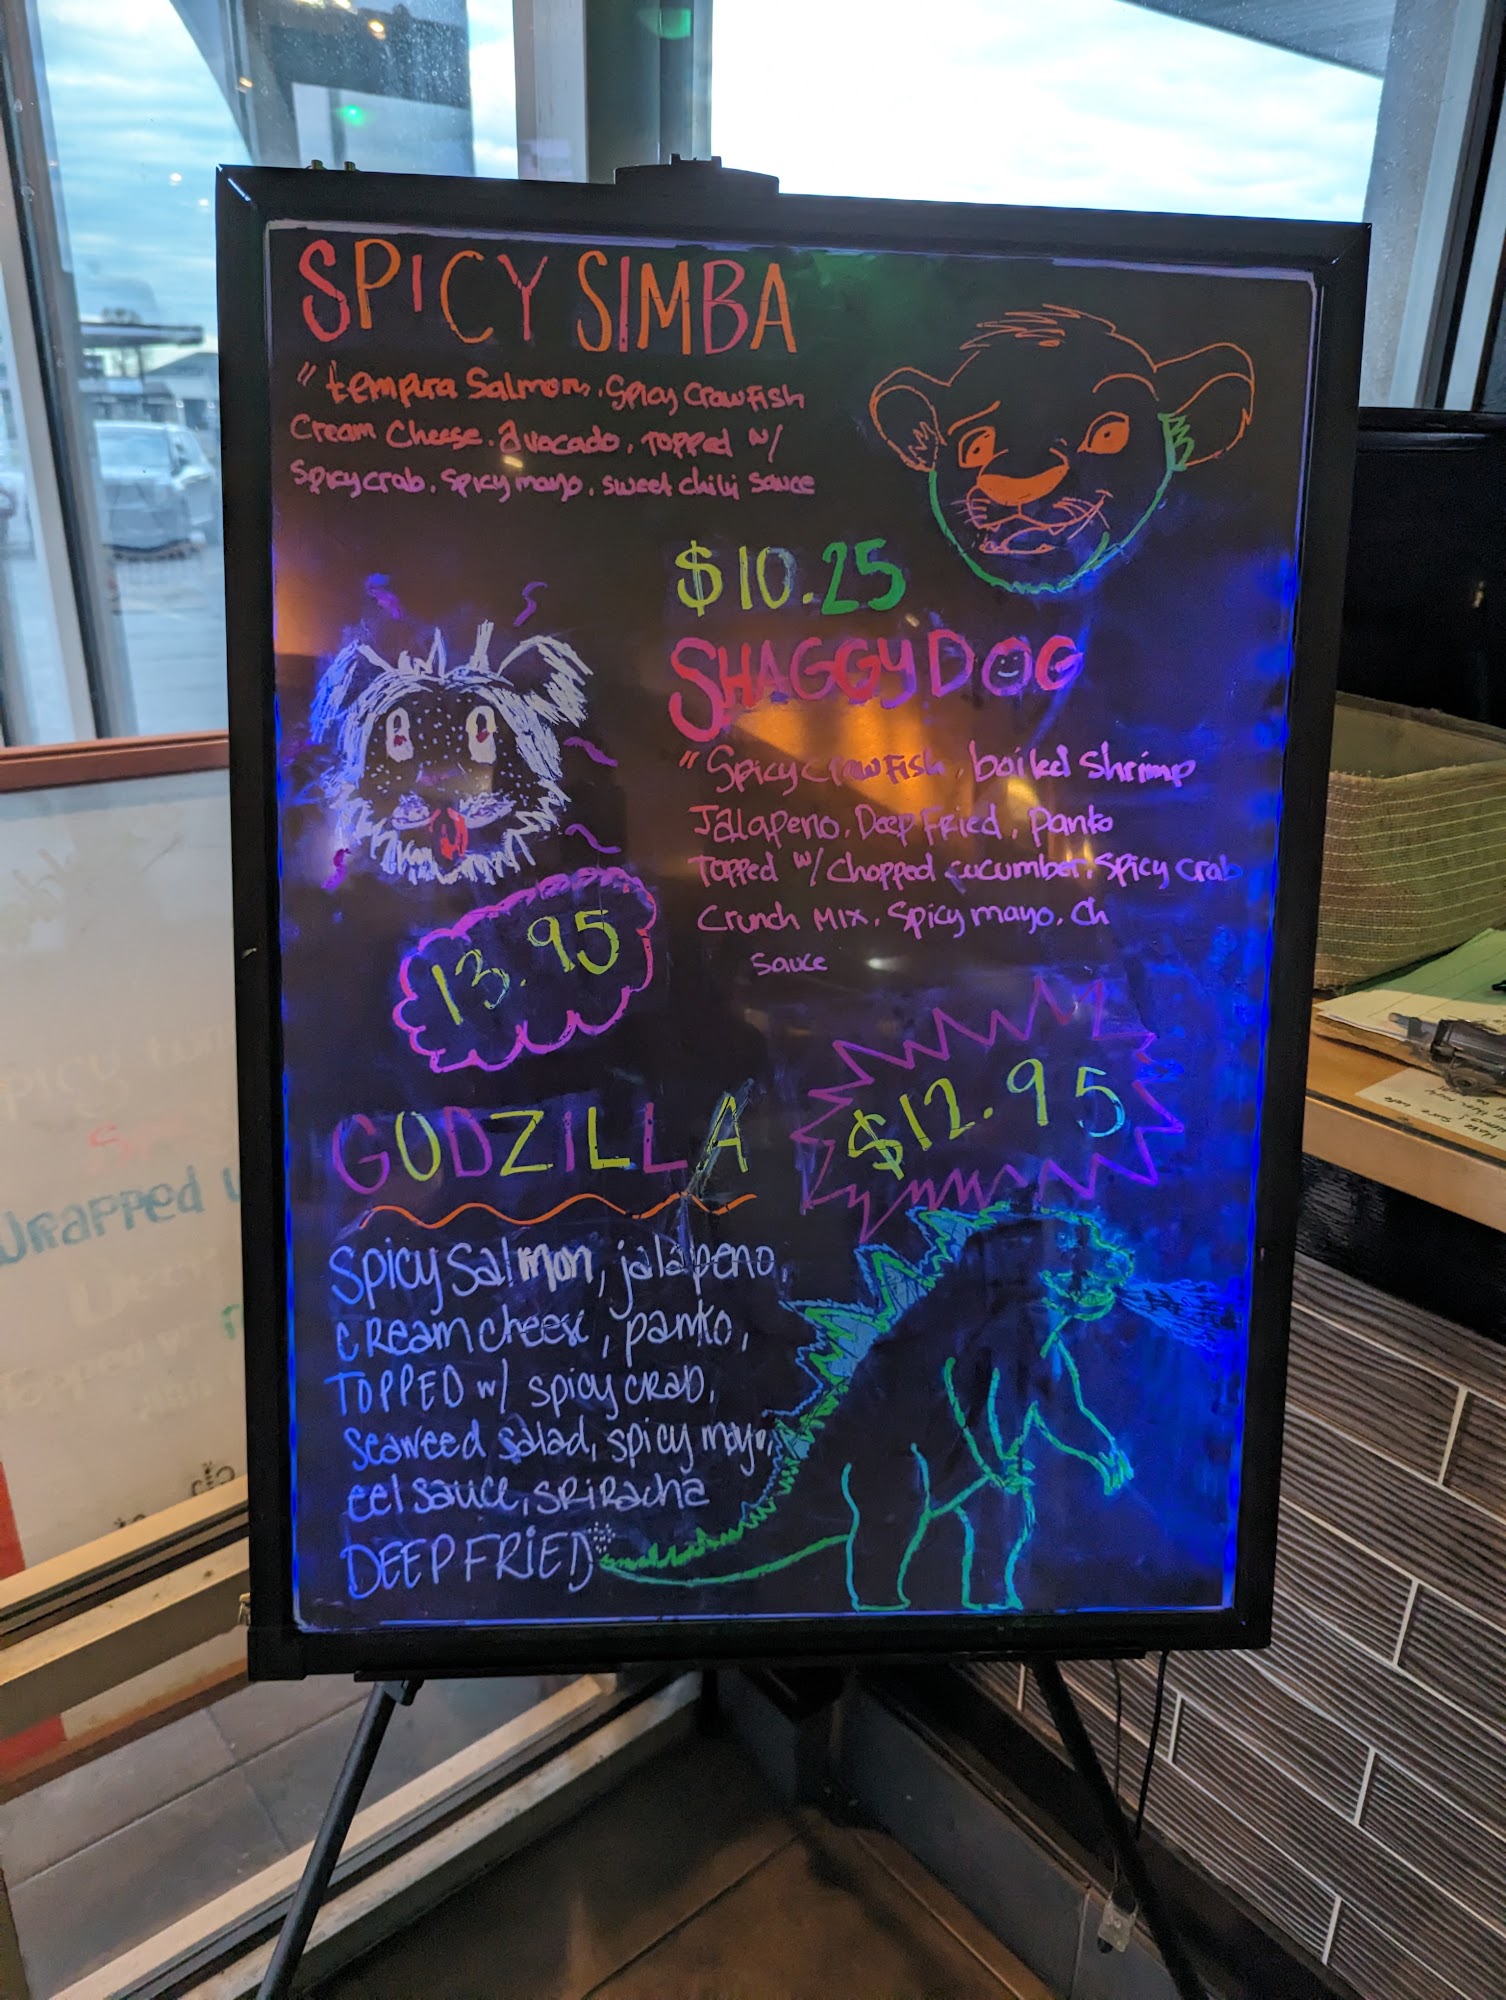 SPICY SIMBA
" tempura Salmon, Spicy Crawfish
Cream Cheese, avocado, Topped w/
Spicy crab, spicy mayo, sweet chili sauce
$10.25
SHAGGY DOG
" Spicy crawfish, boiled shrimp
Jalapeno, Deep Fried, panko
Topped w/ chopped cucumber, spicy crab
Crunch MIX, spicy mayo, Ch
Sauce
13.95
GODZILLA
$12.95
Spicy Salmon, jalapeno,
cream cheese, panko,
TOPPED w/ spicy crab,
seaweed salad, spicy mayo,
eel sauce, sriracha
DEEP FRIED
Wrapped
Topped w